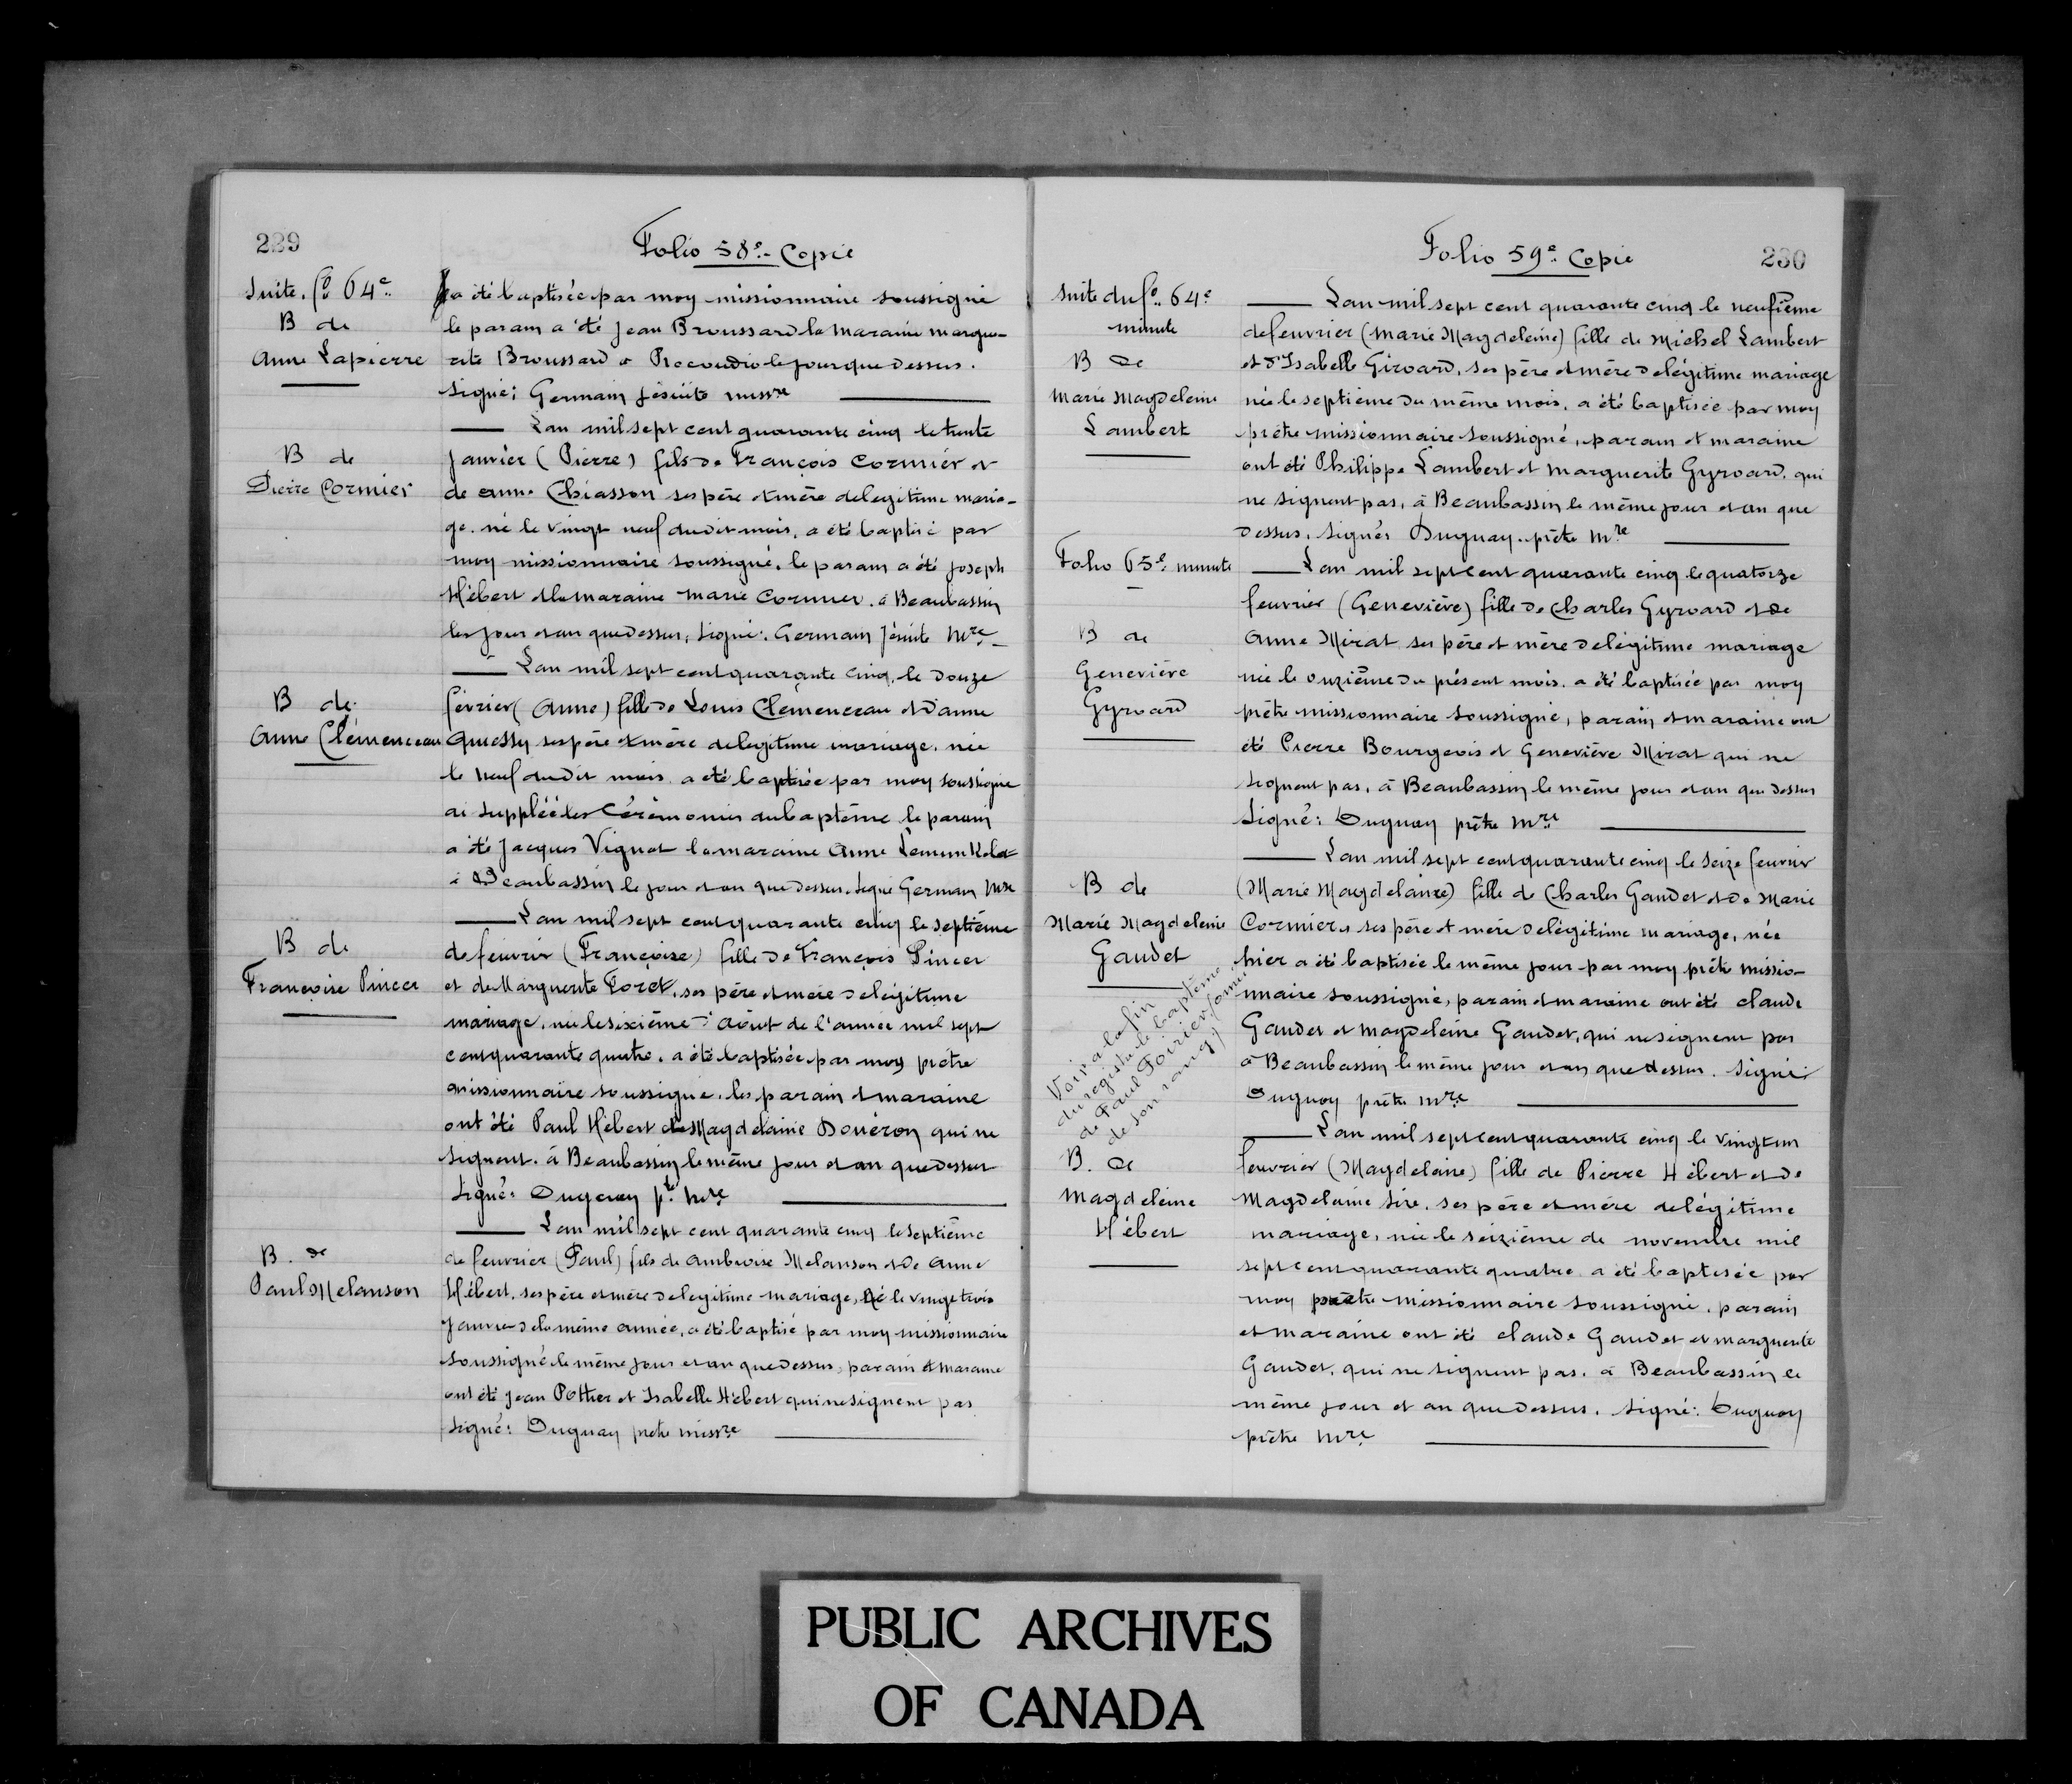 229
Folio 58e. Copie
Suite. fo 64e.
B de
Anne Lapierre
a été baptisée par moy missionnaire soussigné
le parain a été Jean Broussard la maraine margue-
rite Broussard à Pecoudic le jour que dessus.
signé: Germain Jésuite missre
Lan mil sept cent quarante cinq le trente
B de
Pierre Cormier
janvier (Pierre) fils de François Cormier et
de anne Chiasson ses père et mère de legitime maria-
ge. né le vingt neuf dudit mois, a été baptisé par
moy missionnaire soussigné, le parain a été Joseph
Hébert et la maraine Marie Cormier. à Beaubassin
les jour et an que dessus, signé: Germain Jésuite Mre
Lan mil sept cent quarante cinq, le douze
B de
Anne Clémenceau
février (Anne) fille de Louis Clemenceau et d'anne
Quessy ses père et mère de legitime mariage. née
le neuf dudit mois, a été baptisée par moy soussigné
ai suppléé les cérémonies du baptême le parain
a été Jacques Vignot la maraine Anne
à Beaubassin le jour et an que dessus. signé Germain Mre
Lan mil sept cent quarante cinq le septième
B de
Françoise Pincer
de feuvrier (Françoise) fille de François Pincer
et de Marguerite Foret, ses père et mère de légitime
mariage, née le sixième d'août de l'année mil sept
cent quarante quatre, a été baptisée par moy prêtre
missionnaire soussigné, les parain et maraine
ont été Paul Hébert et Magdelaine Douéron qui ne
signent. à Beaubassin le même jour et an que dessus
signé: Duguay ptre Mre
Lan mil sept cent quarante cinq le septième
B. de
Paul Melanson
de feuvrier (Paul) fils de Ambroise Melanson et de Anne
Hébert, ses père et mère de legitime mariage, né le vingt trois
Janvier de la même année, a été baptisé par moy missionnaire
soussigné le même jour et an que dessus, parain et maraine
ont été Jean Pothier et Isabelle Hébert qui ne signent pas
signé: Duguay prêtre missre
Folio 59e. Copie
230
Suite du fo. 64e
minute
B de
Marie Magdeleine
Lambert
Lan mil sept cent quarante cinq le neufième
de feuvrier (Marie Magdeleine) fille de Michel Lambert
et d'Isabelle Giroard, ses père et mère de légitime mariage
née le septième du même mois, a été baptisée par moy
prêtre missionnaire soussigné, parain et maraine
ont été Philippe Lambert et Marguerite Gyroard, qui
ne signent pas, à Beaubassin le même jour et an que
dessus, signés Duguay prêtre Mre
Folio 65e. minute
B de
Geneviève
Gyroard
Lan mil sept cent quarante cinq le quatorze
feuvrier (Geneviève) fille de Charles Gyroard et de
Anne Mirat ses père et mère de légitime mariage
née le onzième du présent mois, a été baptisée par moy
prêtre missionnaire soussigné, parain et maraine ont
été Pierre Bourgeois et Geneviève Mirat qui ne
signent pas, à Beaubassin le même jour et an que dessus
signé: Duguay prêtre Mre
Lan mil sept cent quarante cinq le seize feuvrier
B de
Marie Magdeleine
Gaudet
(Marie Magdelaine) fille de Charles Gaudet et de Marie
Cormier, ses père et mère de légitime mariage, née
hier a été baptisée le même jour par moy prêtre missio-
nnaire soussigné, parain et maraine ont été claude
Gaudet et Magdeleine Gaudet, qui ne signent pas
à Beaubassin le même jour et an que dessus. signé:
Duguay prêtre Mre
Voir à la fin
du registre le baptême
de Paul Poirier (omis
de son rang)
Lan mil sept cent quarante cinq le vingt un
B. de
Magdeleine
Hébert
feuvrier (Magdelaine) fille de Pierre Hébert et de
Magdelaine Sire, ses père et mère de légitime
mariage, née le seizième de novembre mil
sept cent quarante quatre a été baptisée par
moy prêtre missionnaire soussigné, parain
et maraine ont été claude Gaudet et marguerite
Gaudet, qui ne signent pas. à Beaubassin le
même jour et an que dessus. signé: Duguay
prêtre Mre
PUBLIC ARCHIVES
OF CANADA